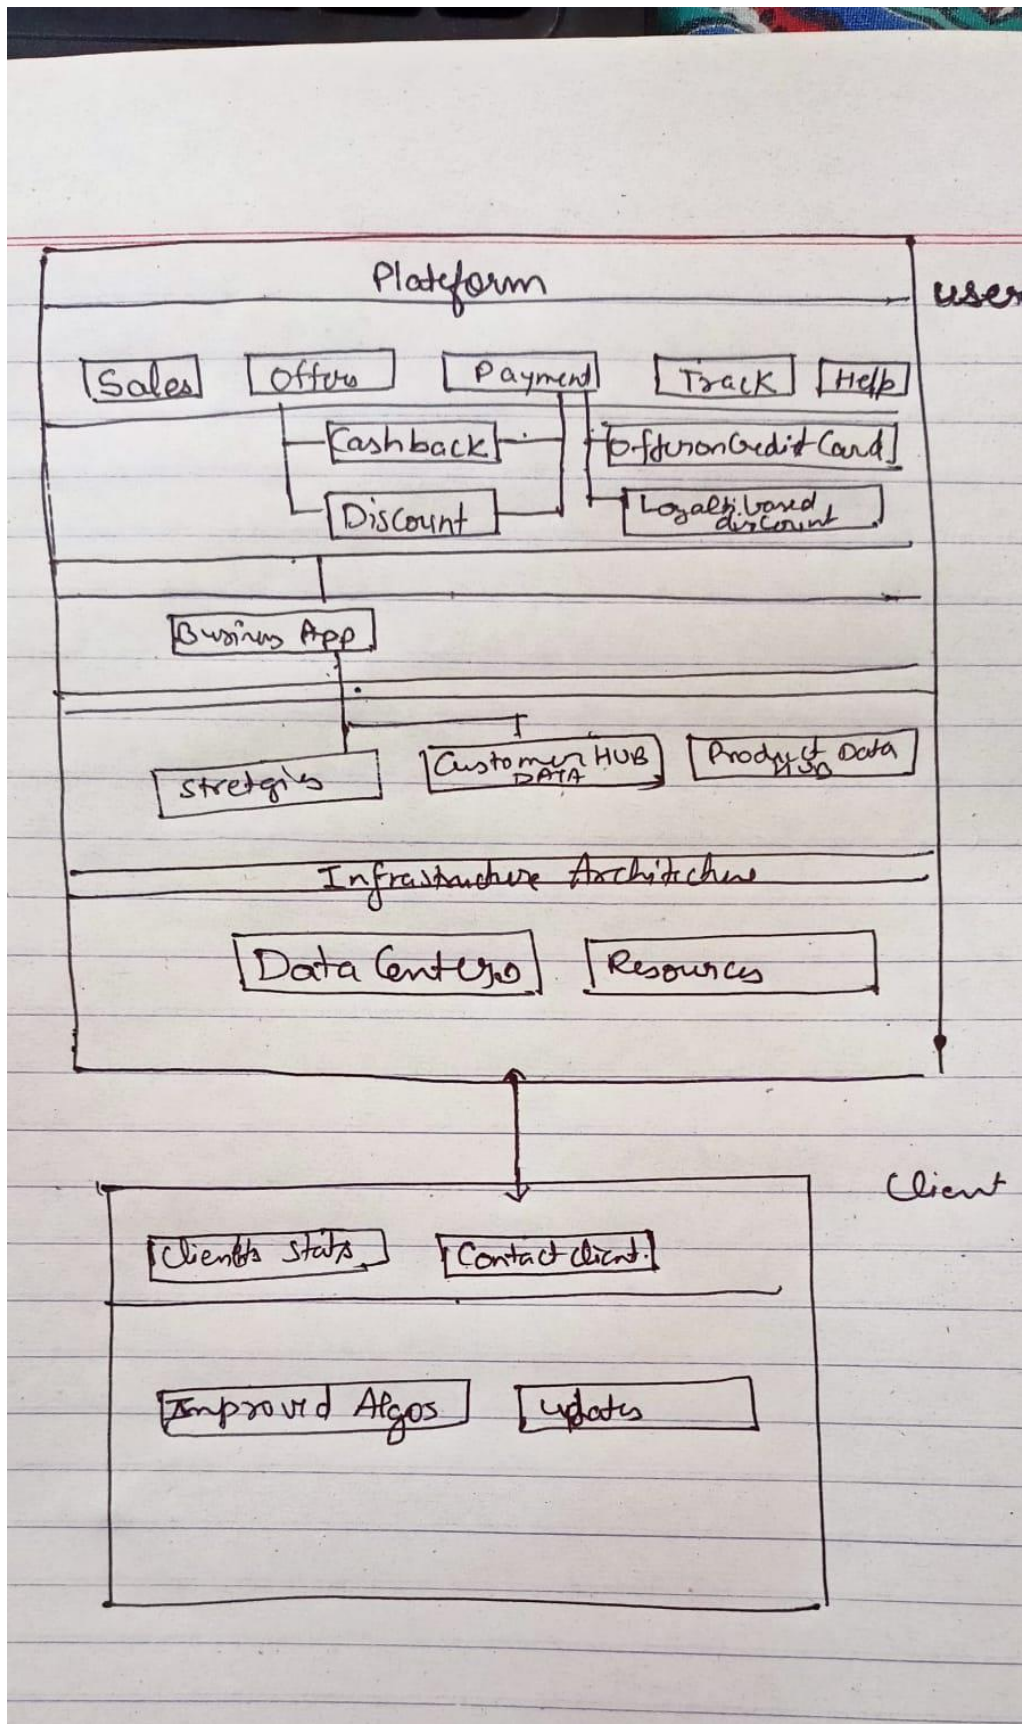 Plateform
user
Sales
Offers
Payment
Track
Help
Cashback
Offer on Credit Card
Discount
Loyalty based
discount
Business App
Stretgies
Customer HUB
DATA
Product Data
HUB
Infrastructure Architecture
Data Centers
Resources
Client
Clients Stats
Contact client.
Improved Algos
updates